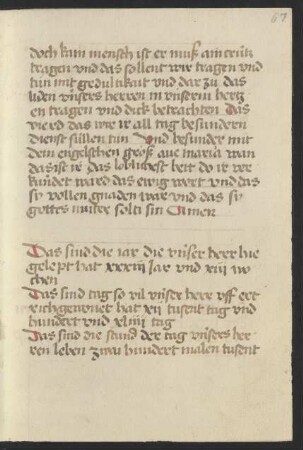 67
doch kain mensch ist er muß ain crütz
tragen vnd das sollent wir tragen vnd
tun mit gedultikait vnd dar zu das
liden vnsers herren in vnserm hertz
en tragen vnd dick betrachten Das
vierd das wir ir all tag besundern
dienst süllen tün Vnd besunder mit
dem engelschen gruß aue maria wan
das ist ir das loblichest bett do ir ver
kündet ward das ewig wort vnd das
sy vollen gnaden wär vnd das sy
gottes muter solti sin Amen
Das sind die iar die vnser herr hie
gelept hat xxxiij Jar vnd xiij wo
chen
Das sind tag so vil vnser herr vff ert
rich gewonet hat xij tusent tag vnd
hundert vnd xliiij tag
Das sind die stund der tag vnsers her
ren leben zwai hundert malen tusent